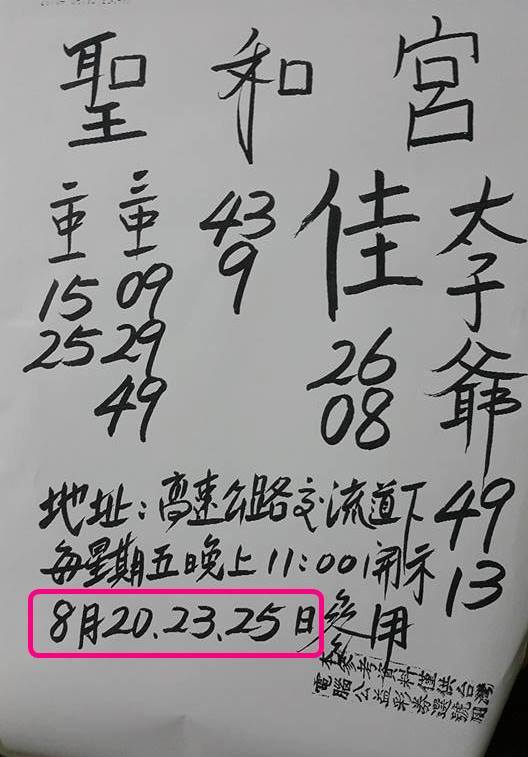 聖和宮
太子爺
49
13
佳
26
08
43
9
三中一
09
29
49
二中一
15
25
地址：高速公路交流道下
每星期五晚上11:00開示
8月20、23、25日參用
本參考資料僅供台灣
電腦公益彩券選號用